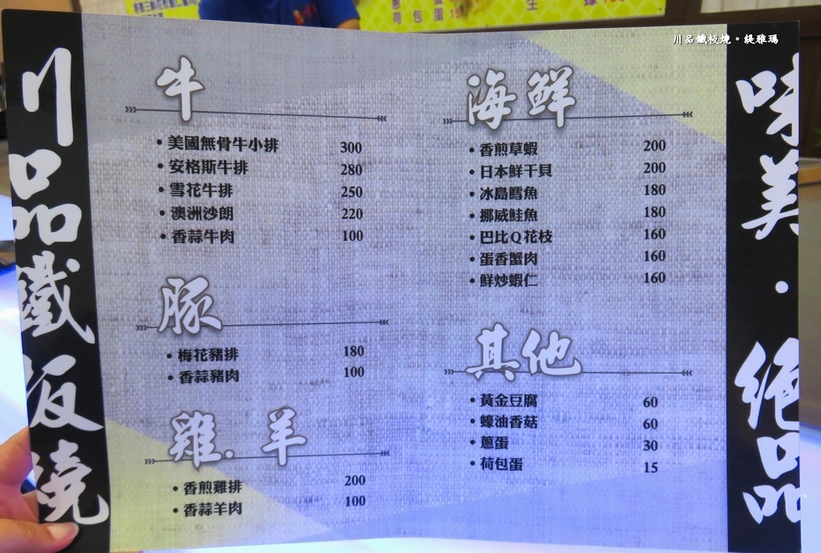 川品鐵板燒。緹雅瑪
川品鐵板燒
牛
美國無骨牛小排 300
安格斯牛排 280
雪花牛排 250
澳洲沙朗 220
香蒜牛肉 100
豚
梅花豬排 180
香蒜豬肉 100
雞.羊
香煎雞排 200
香蒜羊肉 100
海鮮
香煎草蝦 200
日本鮮干貝 200
冰島鱈魚 180
挪威鮭魚 180
巴比Q花枝 160
蛋香蟹肉 160
鮮炒蝦仁 160
其他
黃金豆腐 60
蠔油香菇 60
蔥蛋 30
荷包蛋 15
味美.絕品